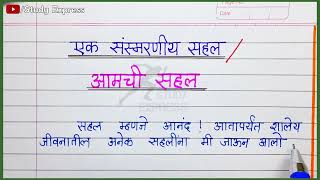 iStudy Express
एक संस्मरणीय सहल /
आमची सहल
सहल म्हणजे आनंद ! आत्तापर्यंत शालेय
जीवनातील अनेक सहलींना मी जाऊन आलो